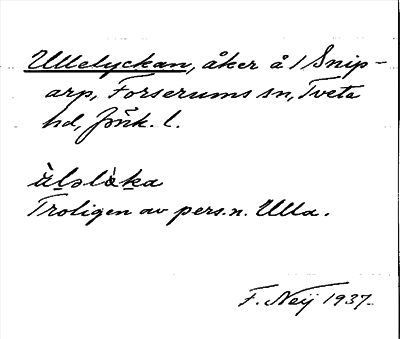 Ullelyckan, åker å 1 Snip-
arp, Forserums sn, Tveta
hd, Jönk. l.
ùləlàka
Troligen av pers.n. Ulla.
F. Neij 1937.